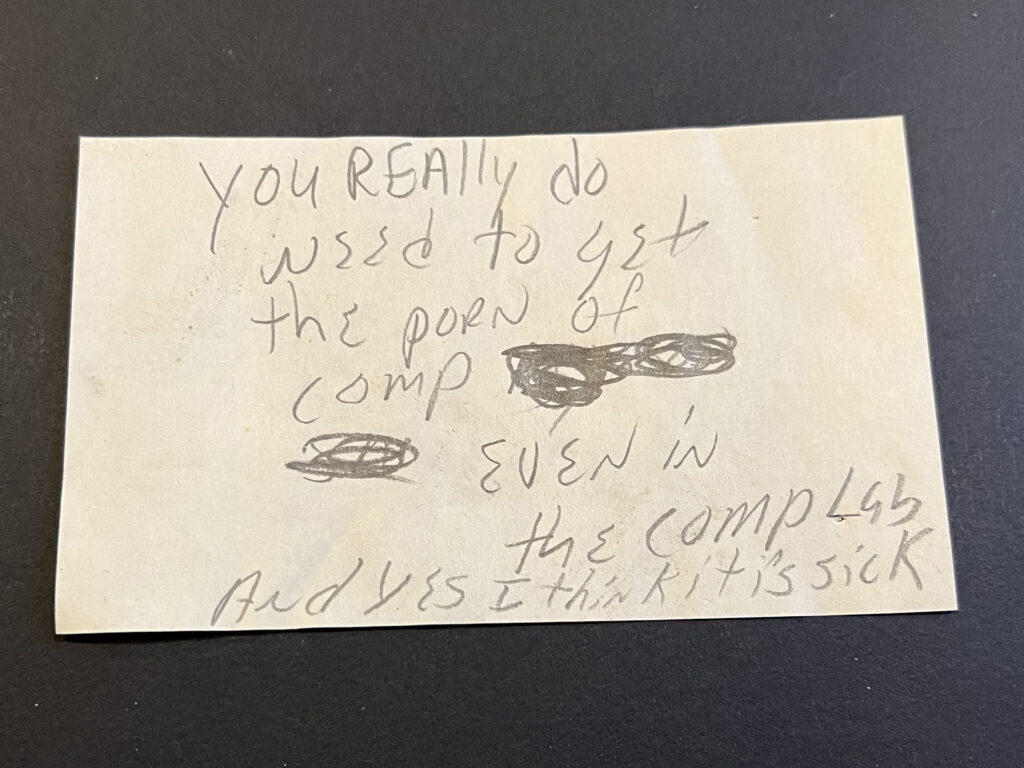 YOU REAlly do
NEEd to get
thE PORN of
comp
EVEN iN
thE comp Lab
And yEs I thiNk it is sick